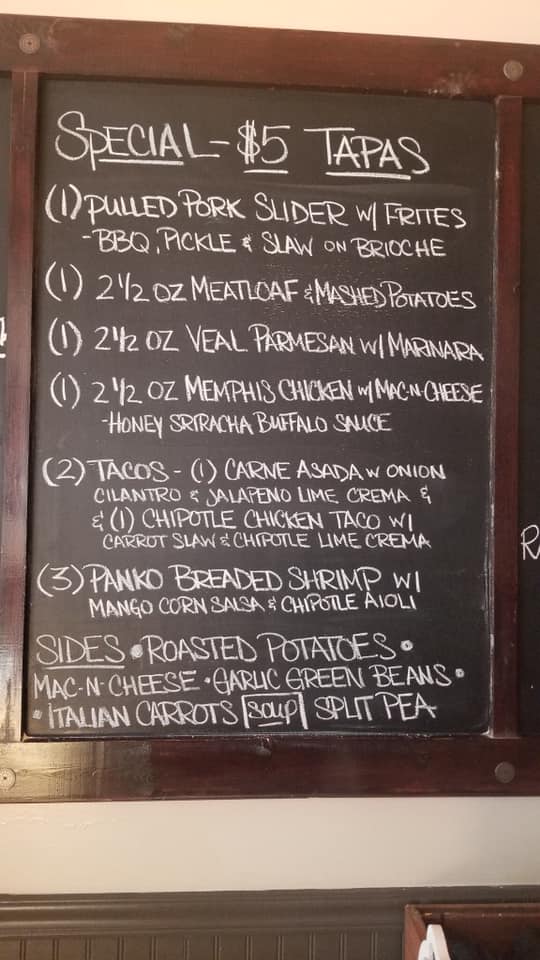 SPECIAL - $5 TAPAS
(1) PULLED PORK SLIDER W/ FRITES
- BBQ, PICKLE & SLAW ON BRIOCHE
(1) 2 1/2 OZ MEATLOAF & MASHED POTATOES
(1) 2 1/2 OZ VEAL PARMESAN W/ MARINARA
(1) 2 1/2 OZ MEMPHIS CHICKEN W/ MAC-N-CHEESE
- HONEY SRIRACHA BUFFALO SAUCE
(2) TACOS - (1) CARNE ASADA W ONION
CILANTRO & JALAPENO LIME CREMA &
& (1) CHIPOTLE CHICKEN TACO W/
CARROT SLAW & CHIPOTLE LIME CREMA
(3) PANKO BREADED SHRIMP W/
MANGO CORN SALSA & CHIPOTLE AIOLI
SIDES • ROASTED POTATOES •
MAC-N-CHEESE • GARLIC GREEN BEANS •
• ITALIAN CARROTS SOUP SPLIT PEA
R